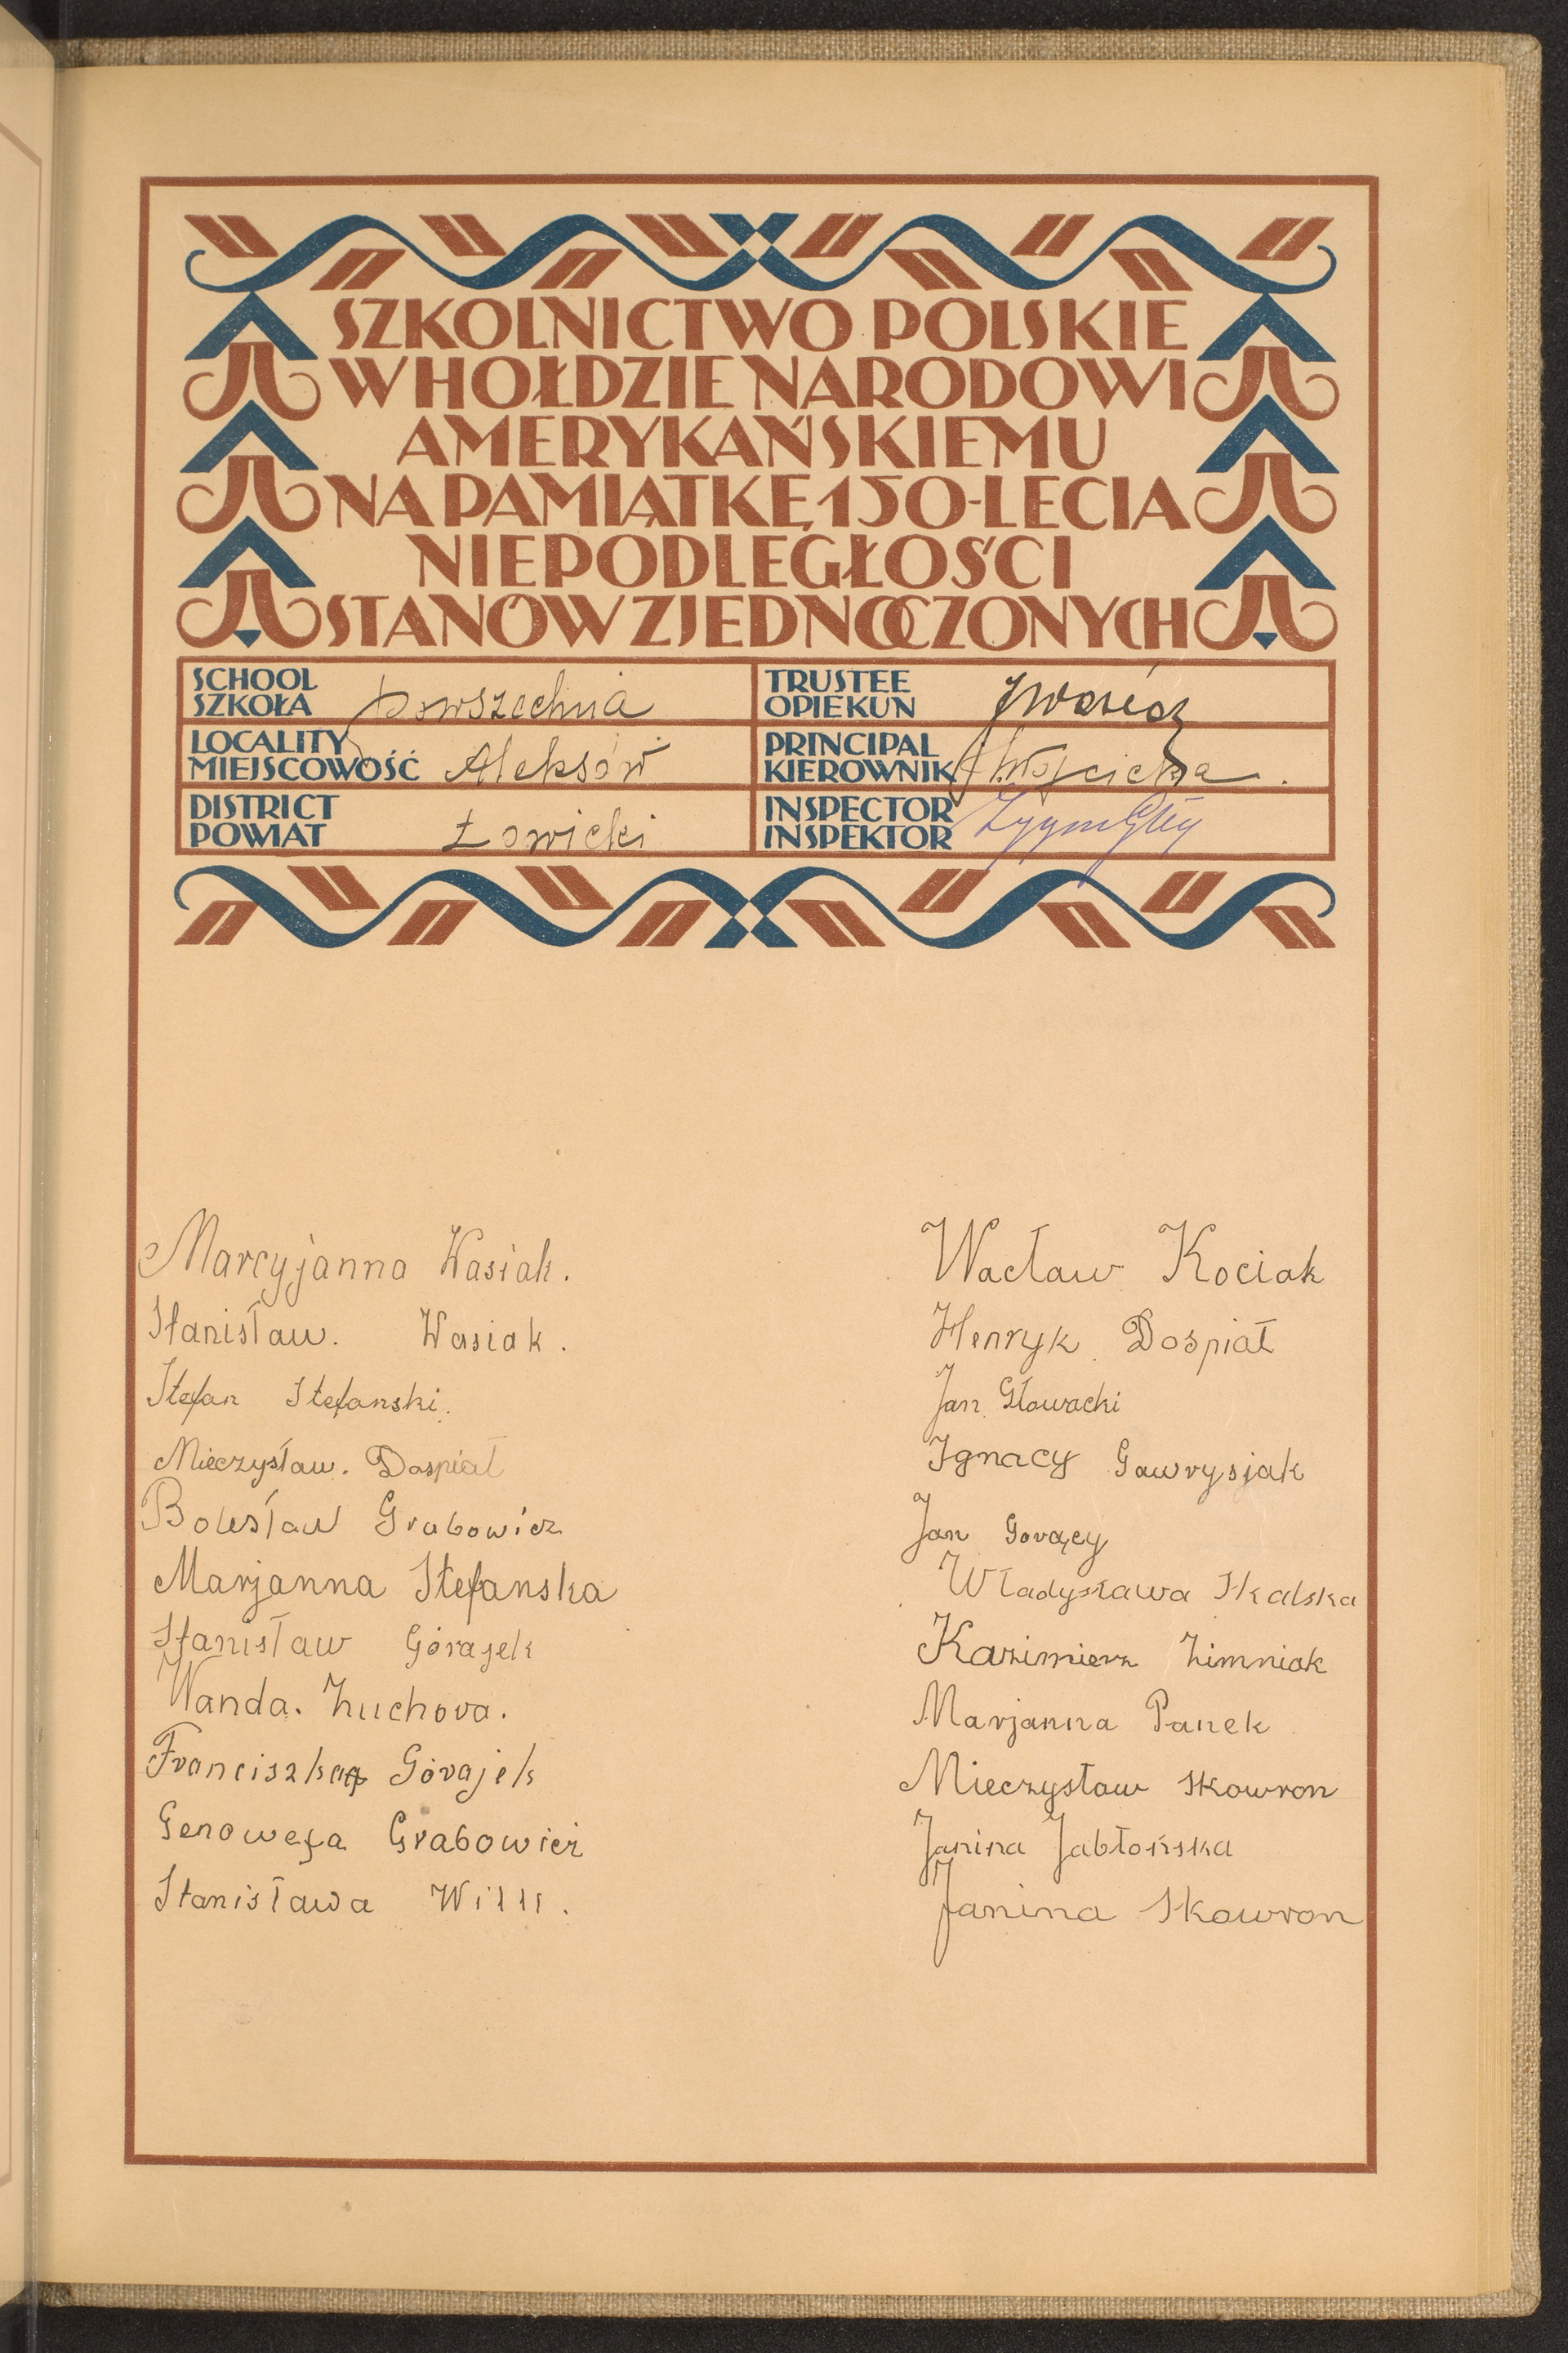 SZKOLNICTWO POLSKIE
W HOŁDZIE NARODOWI
AMERYKAŃSKIEMU
NA PAMIĄTKĘ 150-LECIA
NIEPODLEGŁOŚCI
STANÓW ZJEDNOCZONYCH
SCHOOL
SZKOŁA Powszechna
TRUSTEE
OPIEKUN
LOCALITY
MIEJSCOWOŚĆ Aleksów
PRINCIPAL
KIEROWNIK Wójcicka.
DISTRICT
POWIAT Łowicki
INSPECTOR
INSPEKTOR
Marcyjanna Wasiak.
Stanisław. Wasiak.
Stefan Stefanski.
Mieczysław. Dospiał
Bolesław Grabowicz
Marjanna Stefanska
Stanisław Górajek
Wanda. Żuchova.
Franciszka Górajek
Genowefa Grabowicz
Stanisława
Wacław Kociak
Henryk Dospiał
Jan Głowacki
Ignacy Gawrysjak
Jan Gorący
Władysława Skalska
Kazimierz Zimniak
Marjanna Panek
Mieczysław Skowron
Janina Jabłońska
Janina Skowron